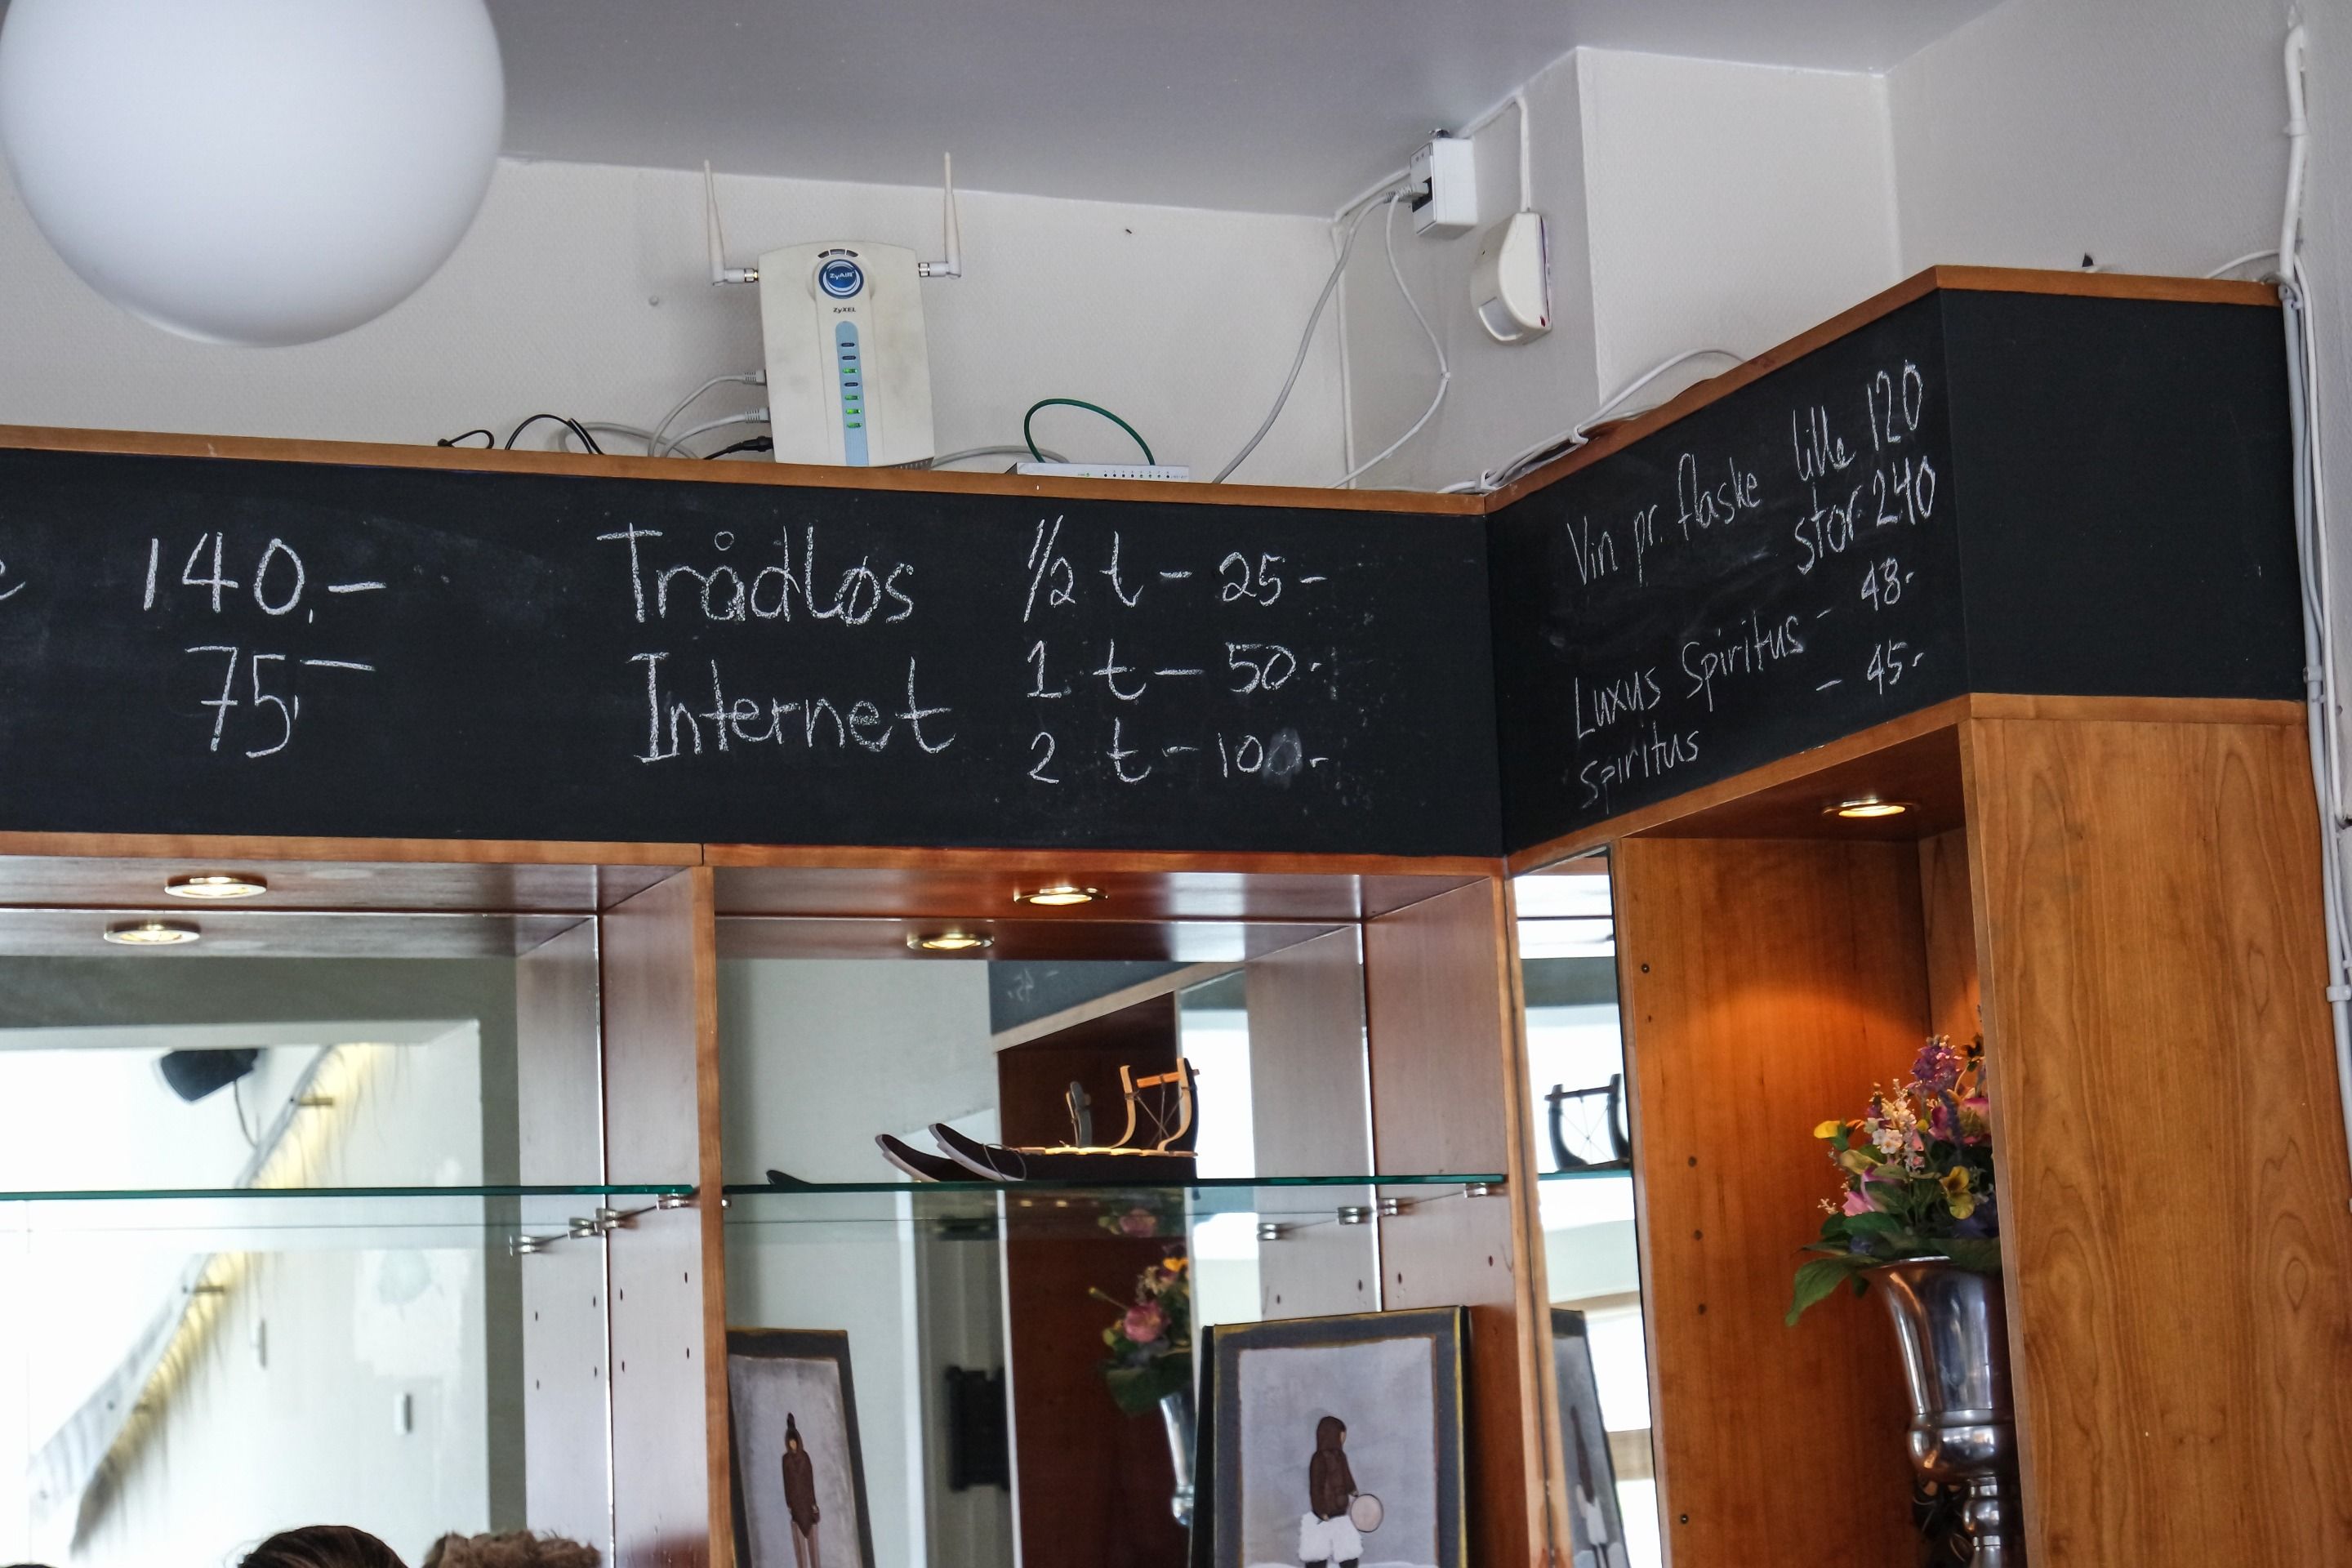 ZyAIR
ZyXEL
140,-
75,-
Trådløs
Internet
1/2 t - 25 -
1 t - 50.-
2 t - 100.-
Vin pr. flaske lille 120
stor 240
Luxus Spiritus - 48.-
Spiritus - 45.-